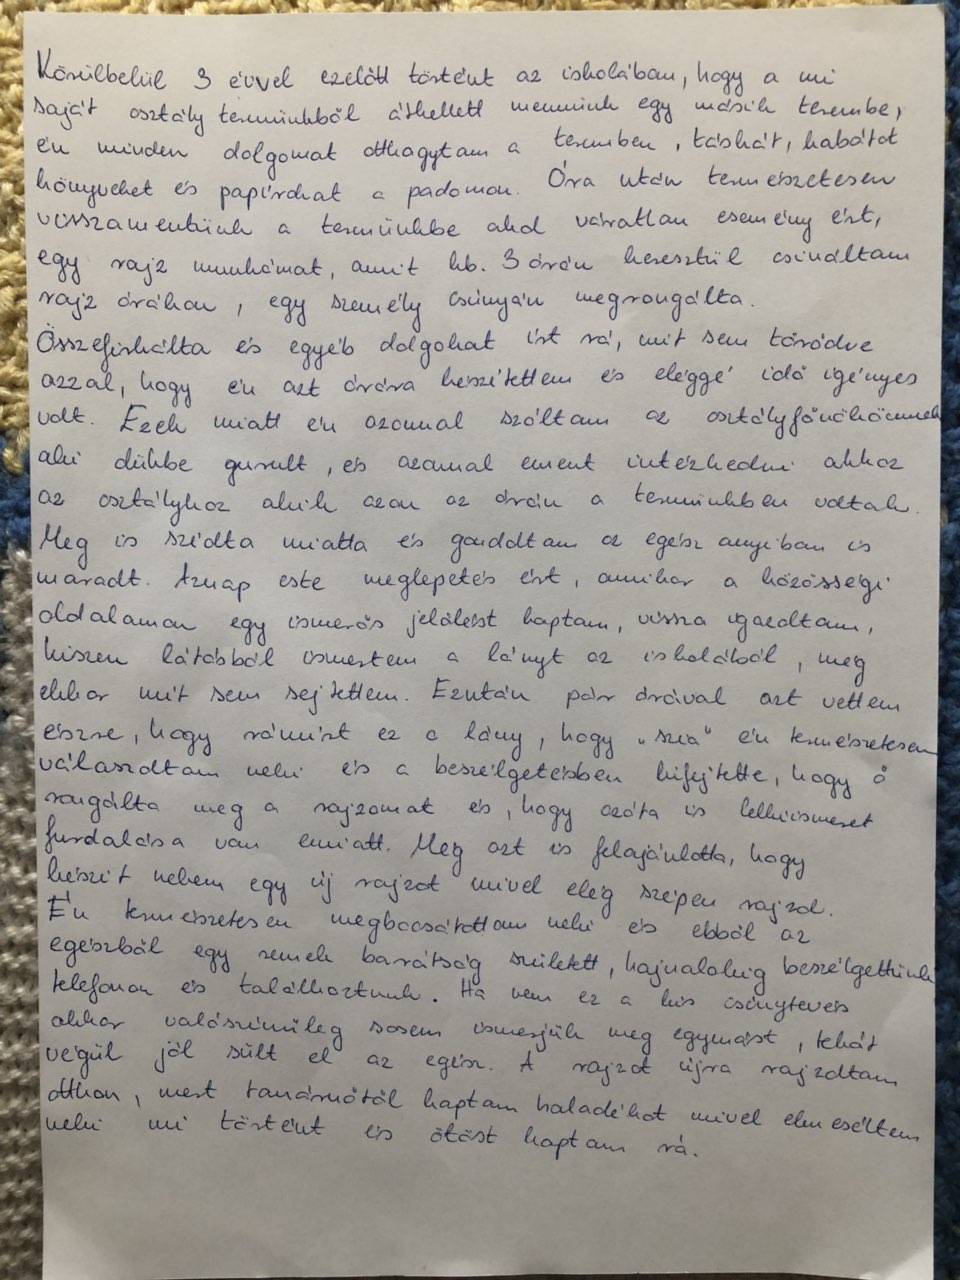 Körülbelül 3 évvel ezelőtt történt az iskolában, hogy a mi
saját osztály termünkből átkellett mennünk egy másik terembe,
én minden dolgomat otthagytam a teremben, táskát, kabátot
könyveket és papírokat a padomon. Óra után természetesen
visszamentünk a termünkbe ahol váratlan esemény ért,
egy rajz munkámat, amit kb. 3 órán keresztül csináltam
rajz órákon, egy személy csúnyán megrongálta.
Összefirkálta és egyéb dolgokat írt rá, mit sem törödve
azzal, hogy én azt órára készítettem és eléggé idő igényes
volt. Ezek miatt én azonnal szóltam az osztályfőnökömnek
aki dühbe gurult, és azonnal elment intézkedni ahhoz
az osztályhoz akik azon az órán a termünkben voltak.
Meg is szidta miatta és gondoltam az egész annyiban is
maradt. Aznap este meglepetés ért, amikor a közösségi
oldalamon egy ismerős jelölést kaptam, vissza igazoltam,
hiszen látásból ismertem a lányt az iskolából, még
ekkor mit sem sejtettem. Ezután pár órával azt vettem
észre, hogy rámírt ez a lány, hogy „szia" én természetesen
válaszoltam neki és a beszélgetésben kifejtette, hogy ő
rongálta meg a rajzomat és, hogy azóta is lelkiismeret
furdalása van emiatt. Még azt is felajánlotta, hogy
készít nekem egy új rajzot mivel elég szépen rajzol.
Én természetesen megbocsátottam neki és ebből az
egészből egy remek barátság született, hajnalokig beszélgettünk
telefonon és találkoztunk. Ha nem ez a kis csínytevés
akkor valószínűleg sosem ismerjük meg egymást, tehát
végül jól sült el az egész. A rajzot újra rajzoltam
otthon, mert tanárnőtől kaptam haladékot mivel elmeséltem
neki mi történt és ötöst kaptam rá.